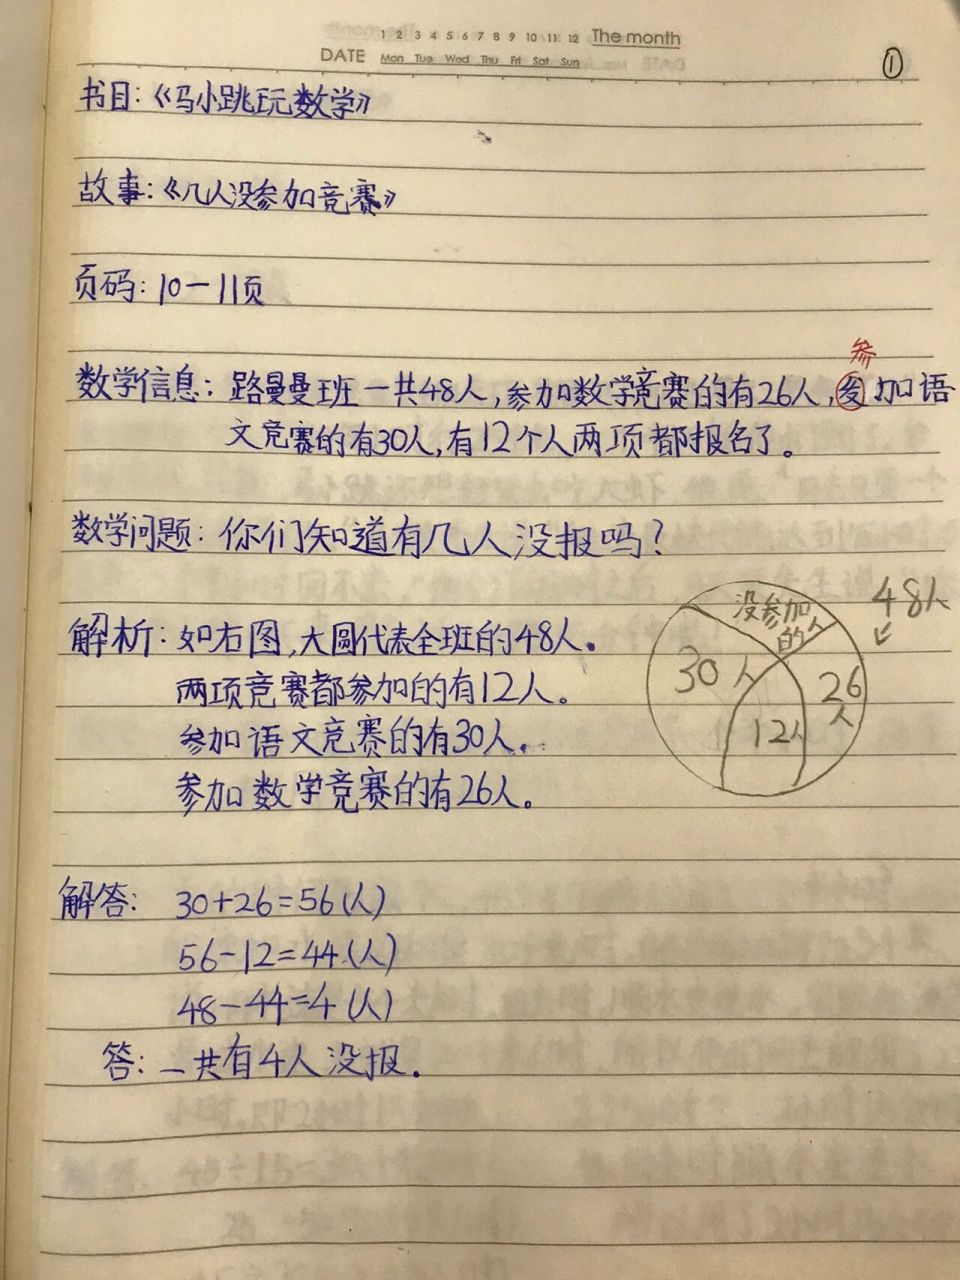 1 2 3 4 5 6 7 8 9 10 11 12 The month
DATE Mon Tue Wed Thu Fri Sat Sun
①
书目：《马小跳玩数学》
故事：《几人没参加竞赛》
页码：10－11页
参
数学信息：路曼曼班一共48人，参加数学竞赛的有26人，参加语
文竞赛的有30人，有12个人两项都报名了。
数学问题：你们知道有几人没报吗？
解析：如右图，大圆代表全班的48人。
两项竞赛都参加的有12人。
参加语文竞赛的有30人.
参加数学竞赛的有26人。
没参加
的人
48人
30人
26
人
12人
解答：30+26=56(人)
56-12=44(人)
48-44=4(人)
答：一共有4人没报.